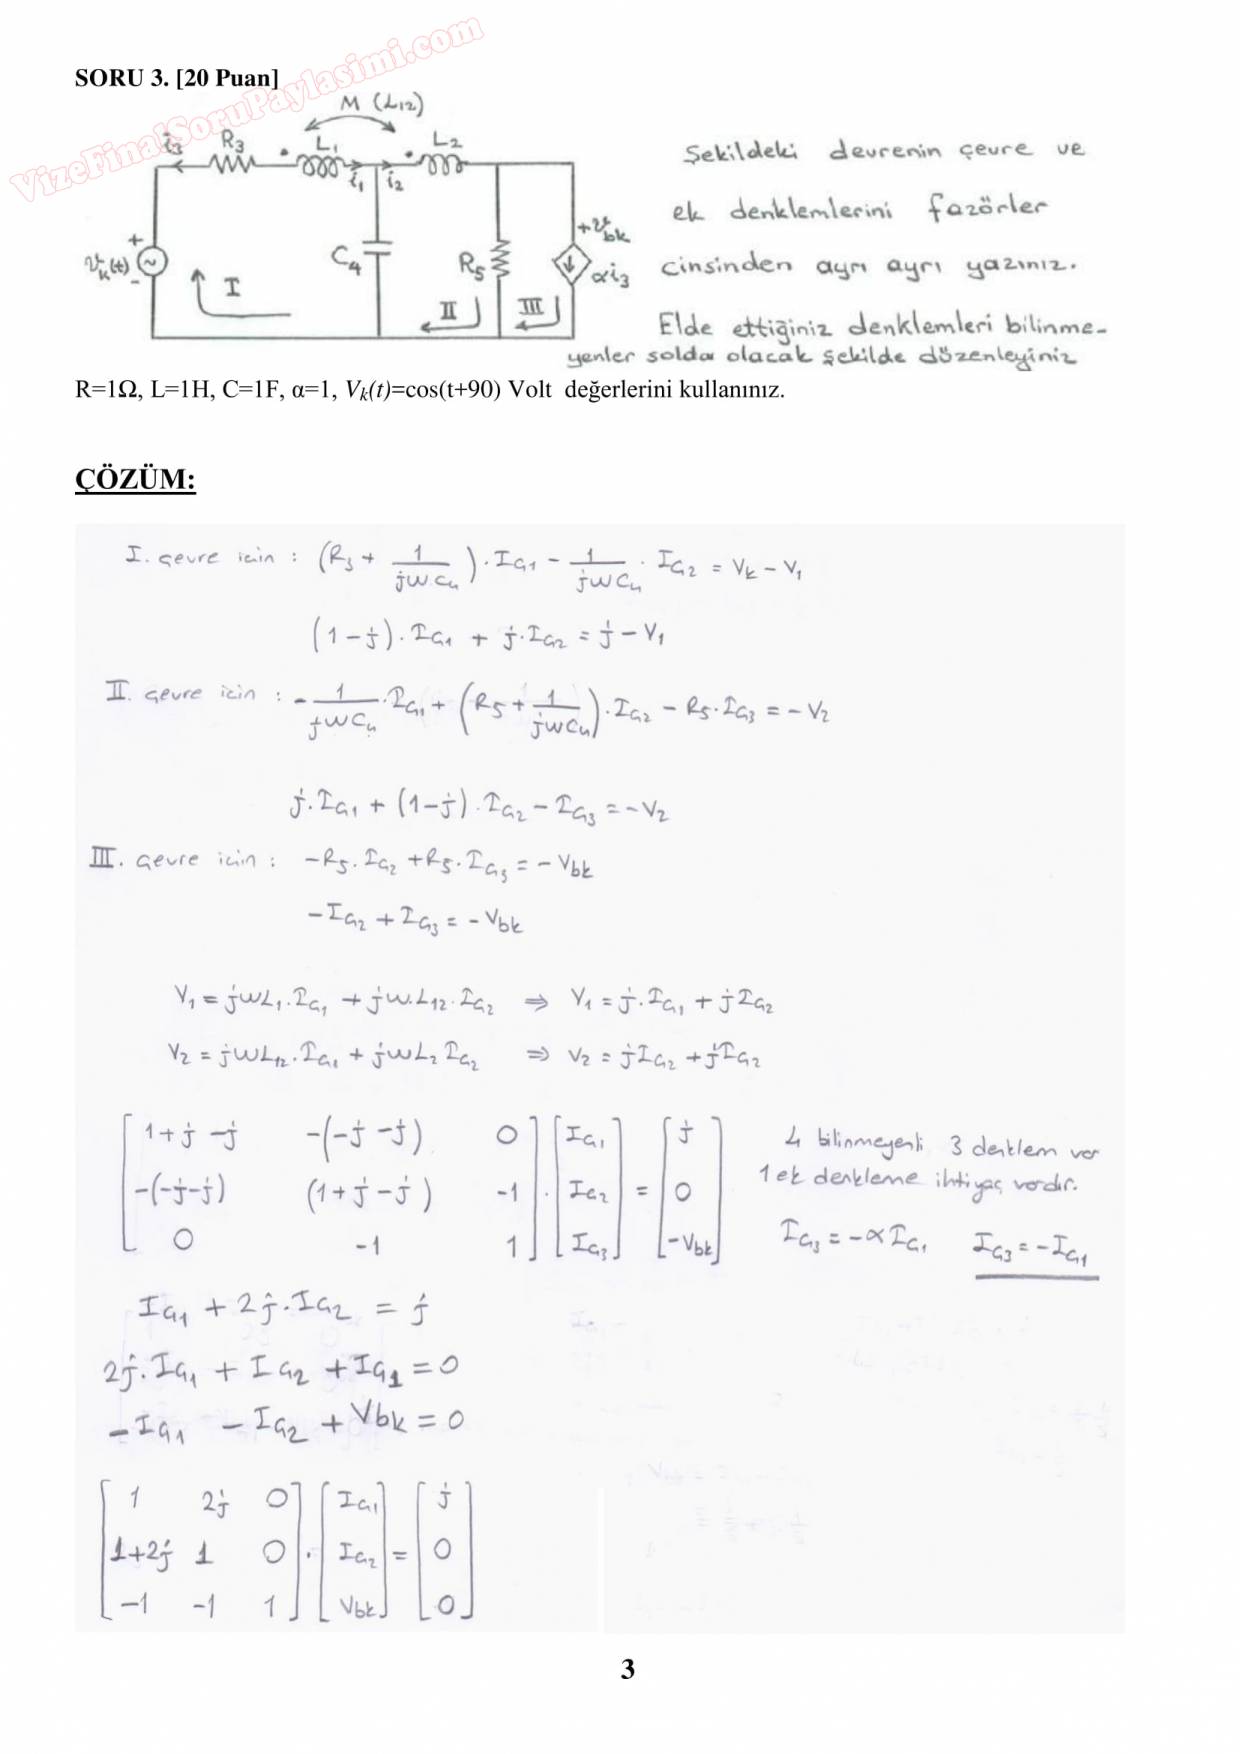 VizeFinalSoruPaylasimi.com
SORU 3. [20 Puan]
M (L12)
i3 R3 L1 i1 i2 L2
vk(t) + - I C4 II R5 III +vbk αi3
Şekildeki devrenin çevre ve
ek denklemlerini fazörler
cinsinden ayrı ayrı yazınız.
Elde ettiğiniz denklemleri bilinme-
yenler solda olacak şekilde düzenleyiniz
R=1Ω, L=1H, C=1F, α=1, Vk(t)=cos(t+90) Volt değerlerini kullanınız.
ÇÖZÜM:
I. Çevre için : (R3 + 1/jωC4) · IG1 - 1/jωC4 · IG2 = Vk - V1
(1-j) · IG1 + j·IG2 = j - V1
II. Çevre için : - 1/jωC4 · IG1 + (R5 + 1/jωC4) · IG2 - R5·IG3 = -V2
j·IG1 + (1-j) · IG2 - IG3 = -V2
III. Çevre için : -R5·IG2 + R5·IG3 = -Vbk
-IG2 + IG3 = -Vbk
V1 = jωL1·IG1 + jω·L12·IG2 ⇒ V1 = j·IG1 + jIG2
V2 = jωL12·IG1 + jωL2 IG2 ⇒ V2 = jIG2 + jIG2
[1+j-j -(-j-j) 0] [IG1] [j]
[-(-j-j) (1+j-j) -1] · [IG2] = [0]
[0 -1 1] [IG3] [-Vbk]
4 bilinmeyenli 3 denklem var
1 ek denkleme ihtiyaç vardır.
IG3 = -αIG1 IG3 = -IG1
IG1 + 2j·IG2 = j
2j·IG1 + IG2 + IG1 = 0
-IG1 - IG2 + Vbk = 0
[1 2j 0] [IG1] [j]
[1+2j 1 0] · [IG2] = [0]
[-1 -1 1] [Vbk] [0]
3